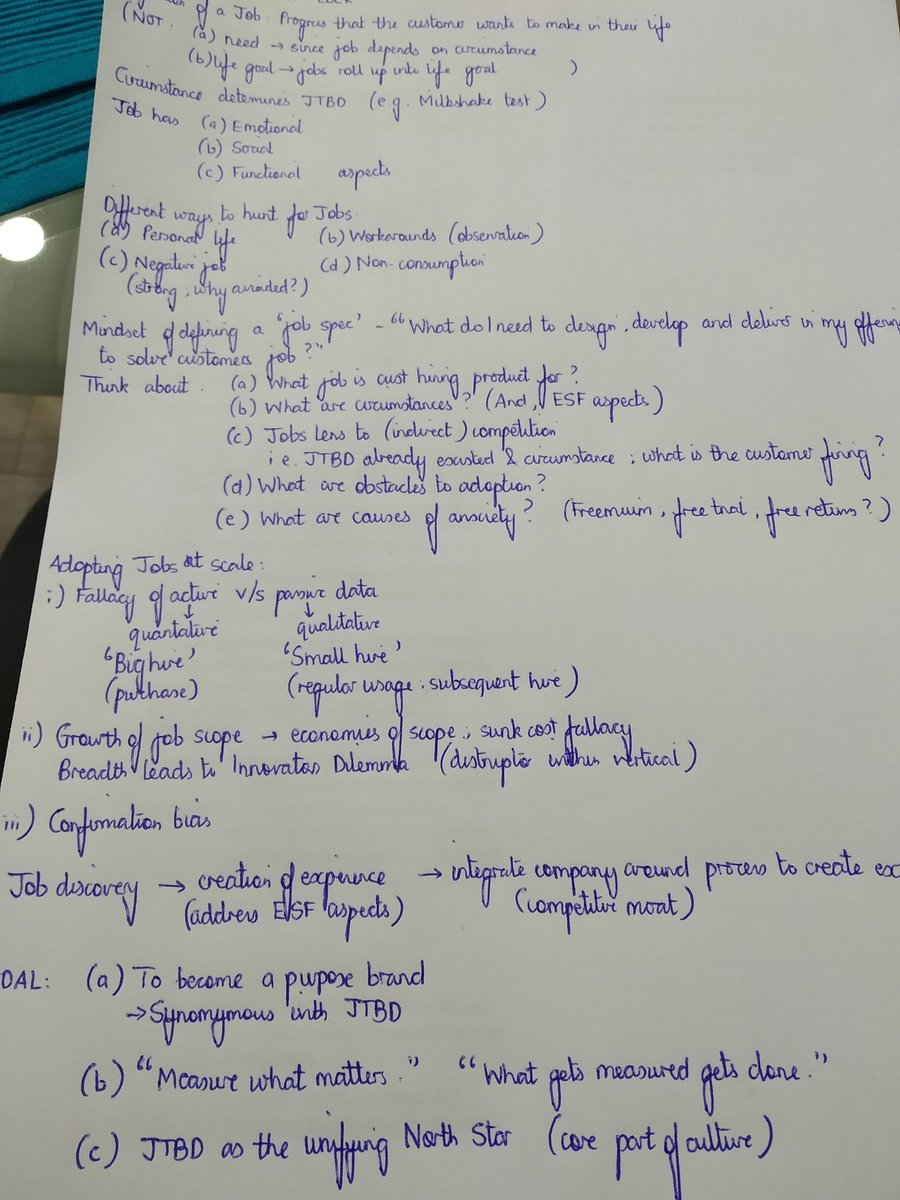 of a Job: Progress that the customer wants to make in their life
(NOT: (a) need → since job depends on circumstance
(b) life goal → jobs roll up into life goal )
Circumstance determines JTBD (e.g. Milkshake test)
Job has (a) Emotional
(b) Social
(c) Functional aspects
Different ways to hunt for Jobs:
(a) Personal life (b) Workarounds (observation)
(c) Negative job (d) Non-consumption
(strong; why avoided?)
Mindset of defining a 'job spec' - "What do I need to design, develop and deliver in my offerin
to solve customers job?"
Think about: (a) What job is cust hiring product for?
(b) What are circumstances? (And, ESF aspects)
(c) Jobs lens to (indirect) competition
i.e. JTBD already existed & circumstance; what is the customer firing?
(d) What are obstacles to adoption?
(e) What are causes of anxiety? (Freemium, free trial, free returns?)
Adopting Jobs at scale:
i) Fallacy of active v/s passive data
↓ ↓
quantative qualitative
'Big hire' 'Small hire'
(purchase) (regular usage; subsequent hire)
ii) Growth of job scope → economies of scope; sunk cost fallacy
Breadth leads to Innovators Dilemma (distruptio within vertical)
iii) Confirmation bias
Job discovery → creation of experience → integrate company around process to create ex
(address ESF aspects) (competitive moat)
OAL: (a) To become a pupose brand
→ Synomymous with JTBD
(b) "Measure what matters." "What gets measured gets done."
(c) JTBD as the unifying North Star (core part of culture)